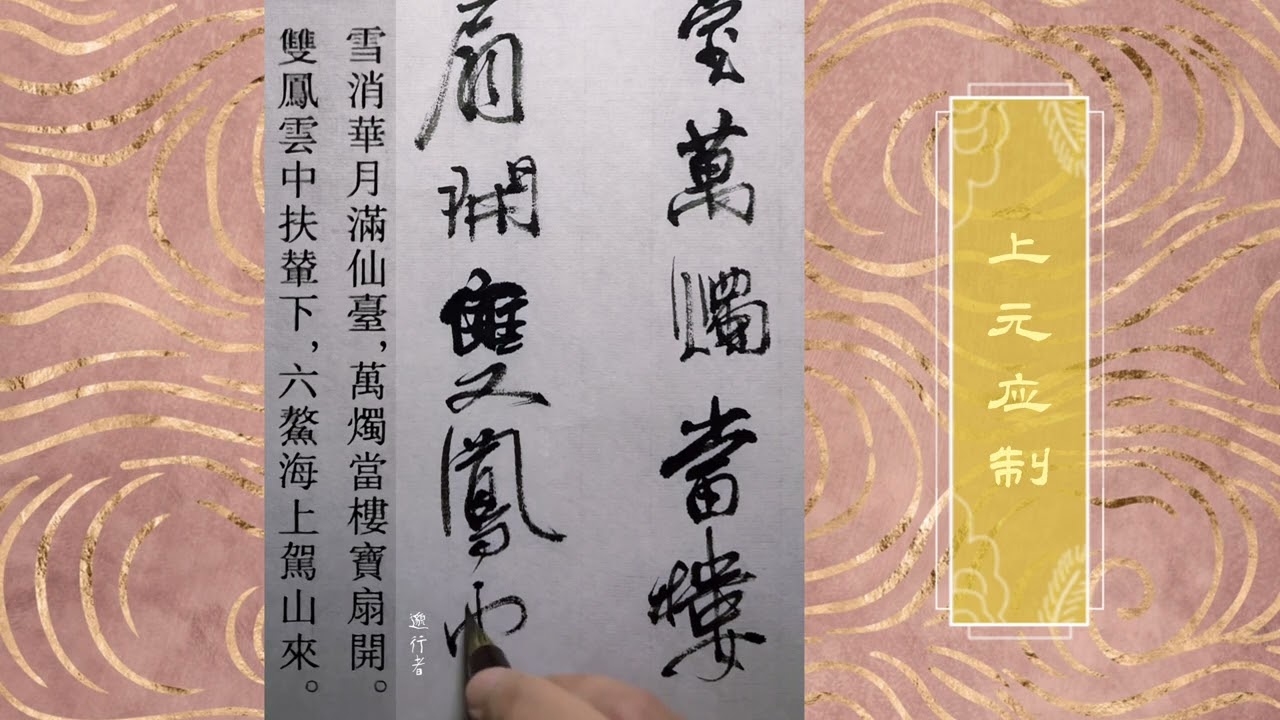 上元应制
臺萬燭當樓
扇開雙鳳
行者
雪消華月滿仙臺,萬燭當樓寶扇開。
雙鳳雲中扶輦下,六鰲海上駕山來。